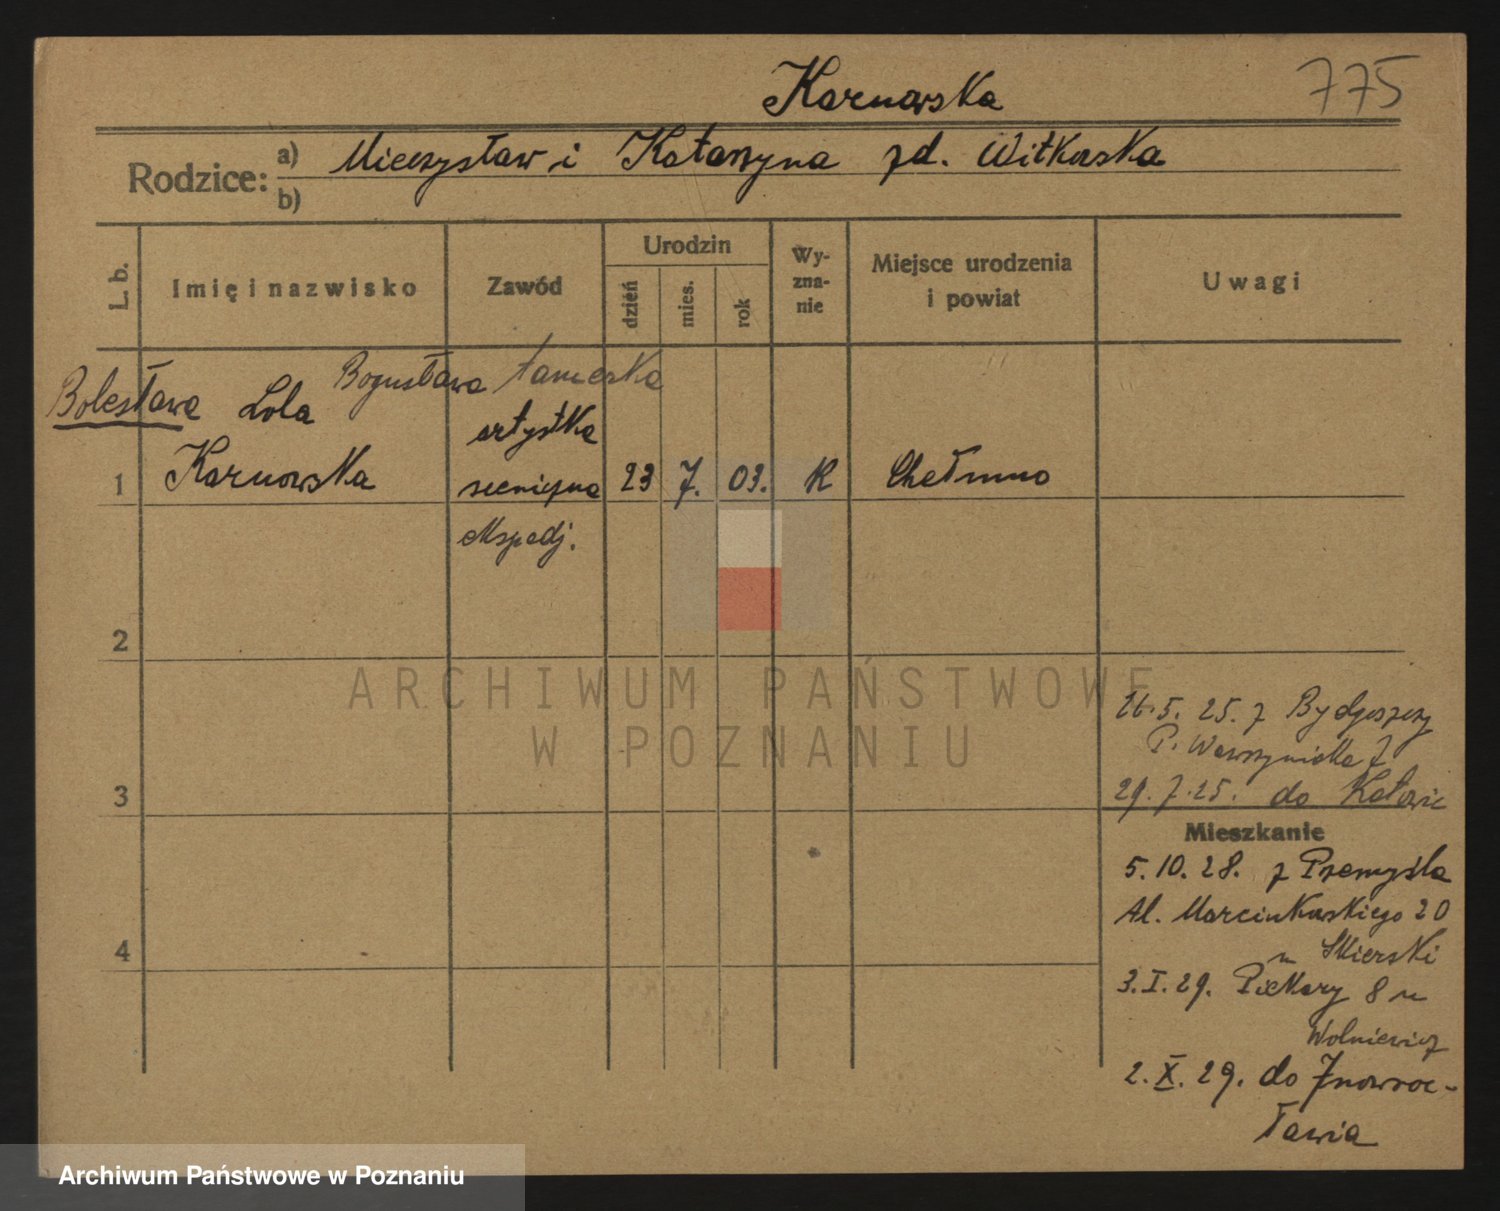 Karnowska
775
Rodzice: a) Mieczysław i Katarzyna zd. Witkowska
b)
L. b.
Imię i nazwisko
Zawód
Urodzin
dzień
mies.
rok
Wy-
zna-
nie
Miejsce urodzenia
i powiat
Uwagi
Bolesława Lola Bogusława tancerka
artystka
1 Karnowska sceniczna 23 7. 03. K Chełmno
ekspedj.
2
3
4
ARCHIWUM PAŃSTWOWE
W POZNANIU
26.5. 25. z Bydgoszczy
P. Wawrzyniaka 7
29.7.25. do Katowic
Mieszkanie
5.10.28. z Przemyśla
Al. Marcinkowskiego 20
u Skierski
3.I.29. Piekary 8 u
Wolniewicz
2.X.29. do Inowroc-
ławia
Archiwum Państwowe w Poznaniu